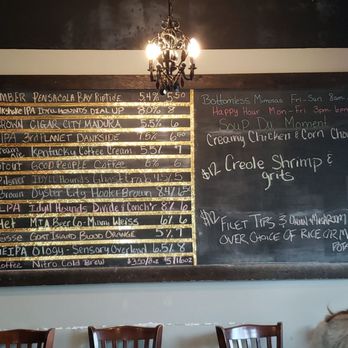 AMBER PENSACOLA BAY RIPTIDE 5.4% 5.50
IPA IDYLL HOUNDS DIAL UP
BROWN CIGAR CITY MADURO 5.5% 6
IPA 3rd PLANET DANKSIDE 7.5% 6.00
KENTUCKY COFFEE CREAM 5.5% 7
STOUT GOOD PEOPLE COFFEE 6
IDYLL HOUNDS
BROWN OYSTER CITY HOOTER BROWN
IPA IDYLL HOUNDS DIVIDE & CONCH'R 6% 6
MIA BEER CO. MIAMI WEISS 6% 6
GOAT ISLAND BLOOD ORANGE 5.2% 7
NEIPA OLOGY - SENSORY OVERLOAD 6.5% 8
COFFEE NITRO COLD BREW
Bottomless Mimosas Fri-Sun 8am
Happy Hour Mon-Fri 3pm 6pm
SOUP DU MOMENT
CREAMY CHICKEN & CORN CHO
$12 CREOLE SHRIMP &
grits
$12 FILET TIPS & MUSHROOM
OVER CHOICE OF RICE GR M
POT